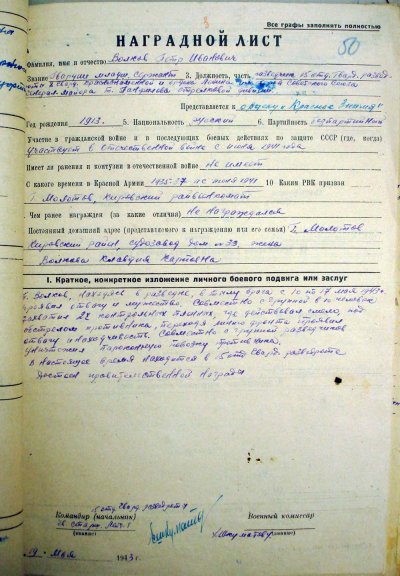 3
Все графы заполнять полностью
50
НАГРАДНОЙ ЛИСТ
Фамилия, имя и отчество Волков Петр Иванович
Звание Гвардии младш. Сержант 3. Должность, часть разведчик 15 отд. Гвард. развед
роты
генерал-майора Панфилова стрелковой дивизии
Представляется к ордену "Красное Знамя"
Год рождения 1913. 5. Национальность русский 6. Партийность беспартийный
Участие в гражданской войне и в последующих боевых действиях по защите СССР (где, когда)
участвует в отечественной войне с июня 1941 года
Имеет ли ранения и контузии в отечественной войне не имеет
С какого времени в Красной Армии 1935-37 и с июня 1941 10 Каким РВК призван
г. Молотов, Кировский райвоенкомат
Чем ранее награжден (за какие отличия) не награждался
Постоянный домашний адрес (представляемого к награждению или его семьи) г. Молотов
Кировский район, судозавод дом № 33, жена
Волкова Клавдия Карповна
I. Краткое, конкретное изложение личного боевого подвига или заслуг
т. Волков, находясь в разведке, в тылу врага с 10 по 17 мая 1943г.
проявил отвагу и мужество, совместно с группой в 10 человек
захватил 22 контрольных пленных, где действовал смело, под
обстрелом противника, переходя линию фронта проявил
отвагу и находчивость. Совместно с группой разведчиков
уничтожил пароконную повозку противника.
В настоящее время находится в 15 отд Гвард. разведроте
Достоин правительственной награды
Командир (начальник)
Гв. старш. лейт.
(звание)
Военный комиссар
(звание)
19 " мая 1943 г.